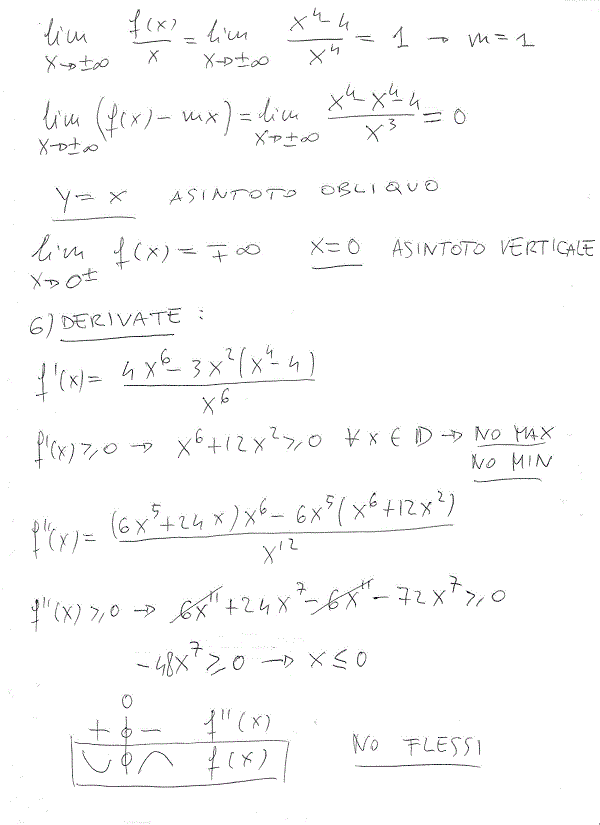 lim x→±∞ f(x)/x = lim x→±∞ (x⁴-4)/x⁴ = 1 → m=1
lim x→±∞ (f(x) - mx) = lim x→±∞ (x⁴-x⁴-4)/x³ = 0
y = x ASINTOTO OBLIQUO
lim x→0± f(x) = ∓∞ x=0 ASINTOTO VERTICALE
6) DERIVATE :
f'(x) = (4x⁶-3x²(x⁴-4))/x⁶
f'(x) ≥ 0 → x⁶+12x² ≥ 0 ∀x∈D → NO MAX
NO MIN
f''(x) = ((6x⁵+24x)x⁶-6x⁵(x⁶+12x²))/x¹²
f''(x) ≥ 0 → 6x¹¹+24x⁷-6x¹¹-72x⁷ ≥ 0
-48x⁷ ≥ 0 → x ≤ 0
0
+ - f''(x)
f(x) NO FLESSI